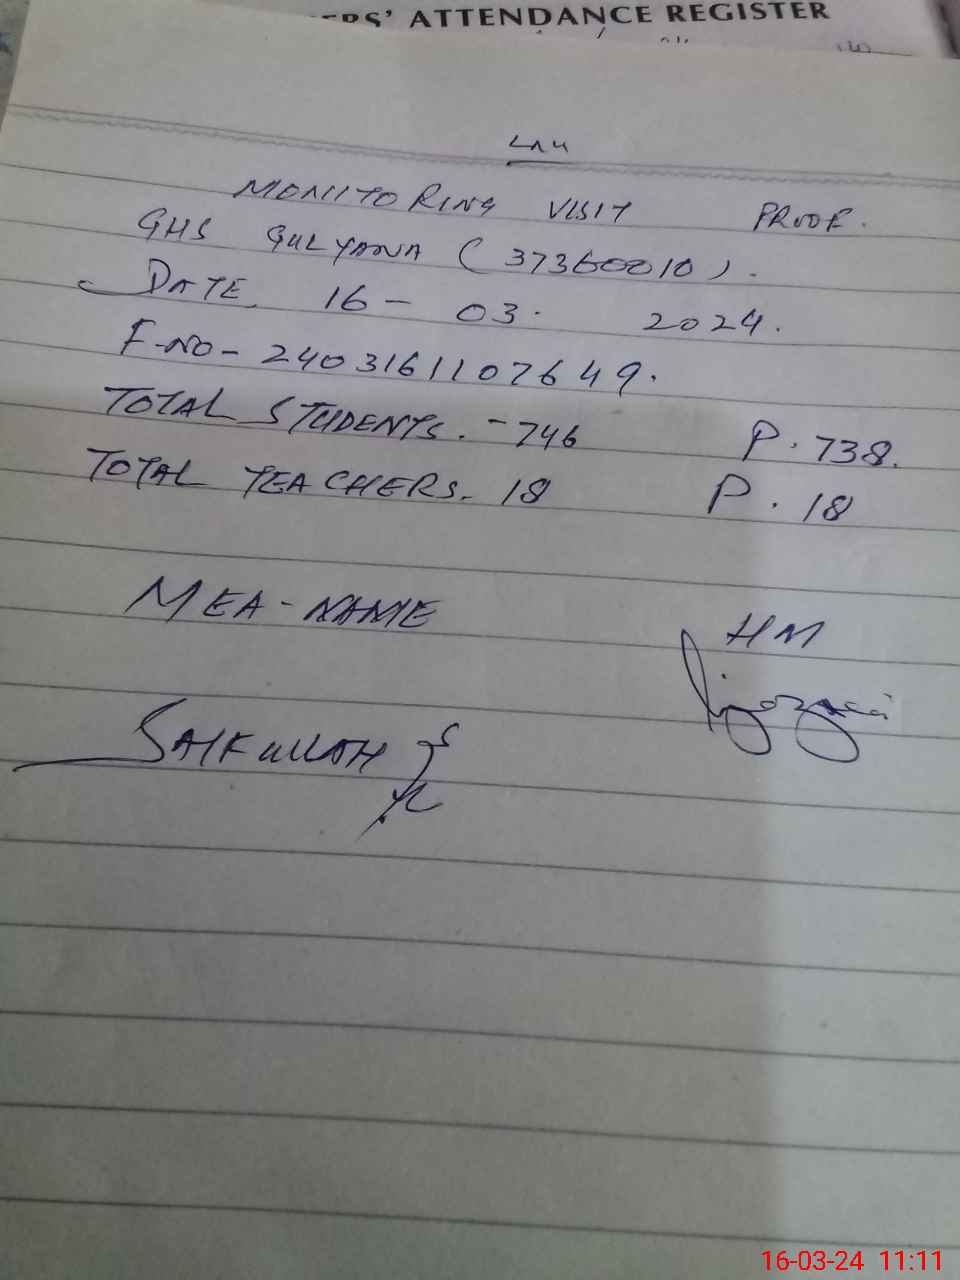 ERS' ATTENDANCE REGISTER
MONITORING VISIT PROOF.
GHS GULYANA (37360010).
DATE 16-03. 2024.
F-NO-2403161107649.
TOTAL STUDENTS.-746 P.738.
TOTAL TEACHERS. 18 P.18
MEA-NAME HM
SAIFULLAH
16-03-24 11:11